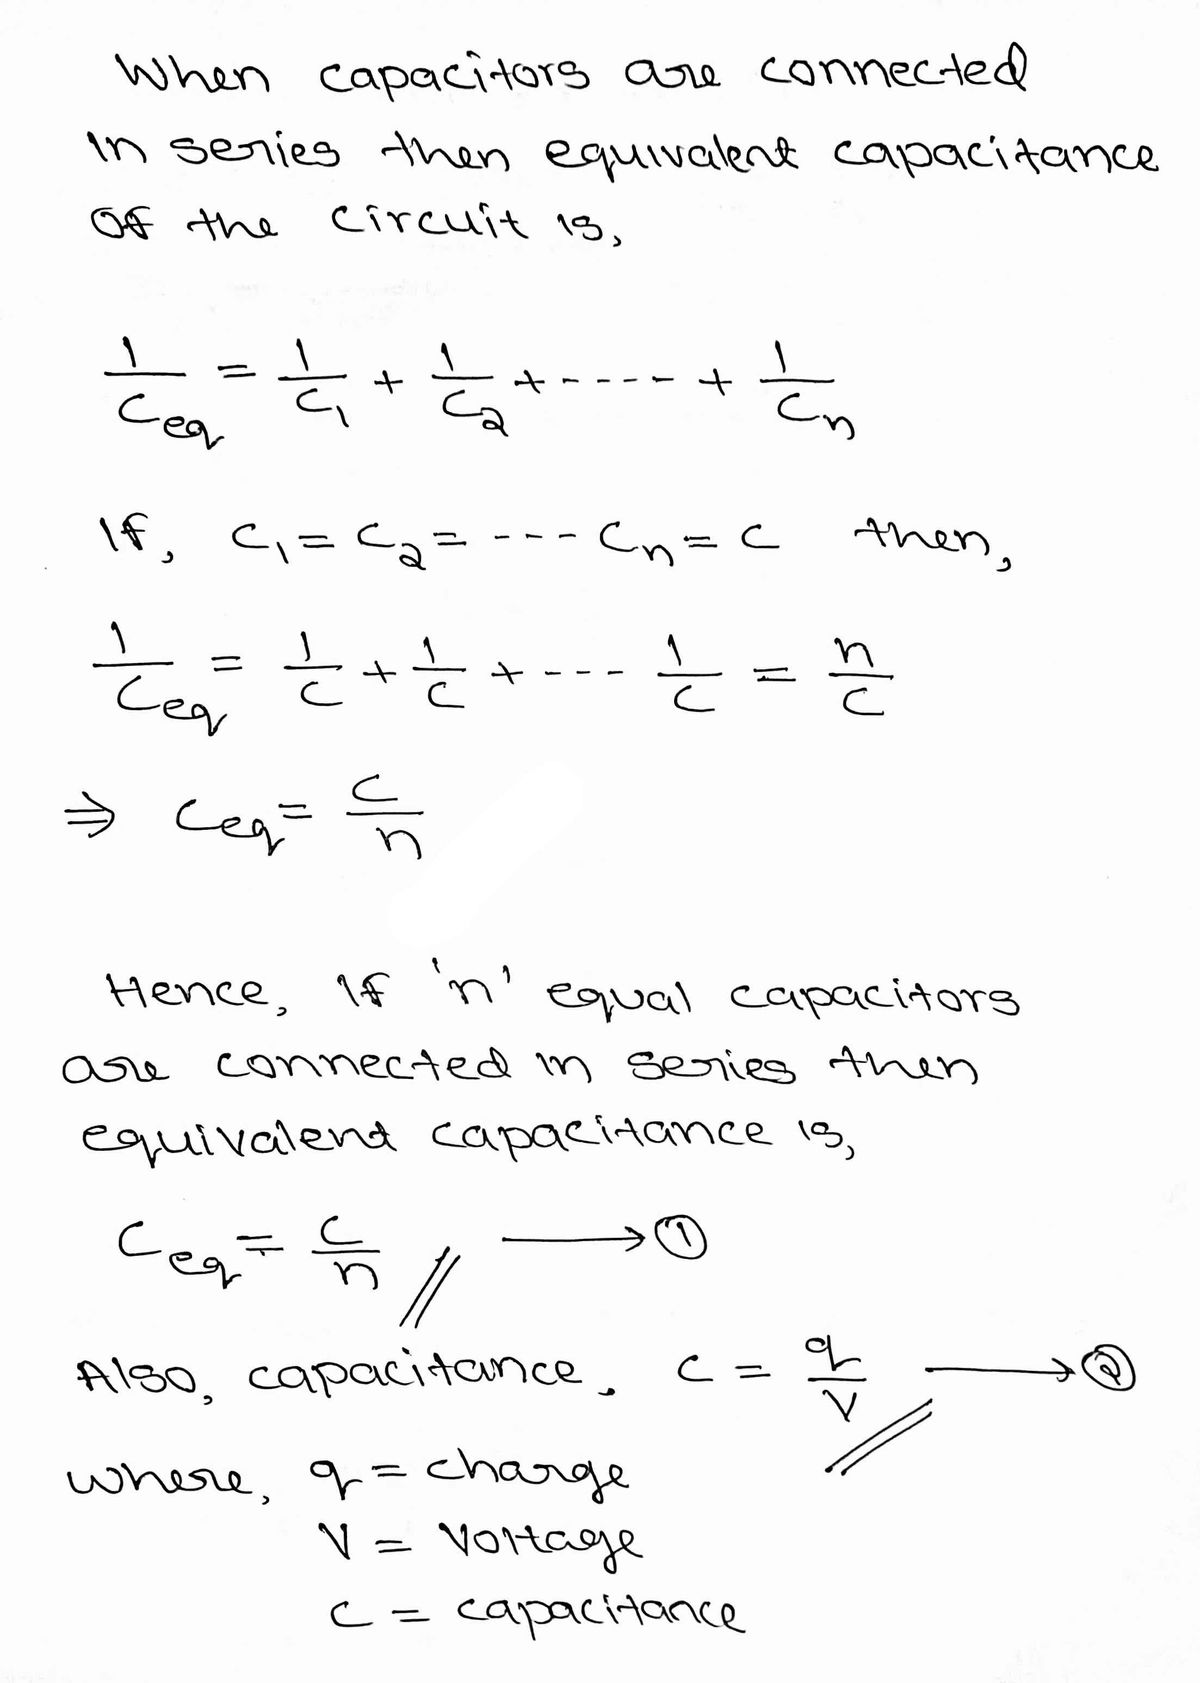 When capacitors are connected
in series then equivalent capacitance
of the circuit is,
1/Ceq = 1/C1 + 1/C2 + ----- + 1/Cn
If, C1 = C2 = --- Cn = C then,
1/Ceq = 1/C + 1/C + --- 1/C = n/C
⇒ Ceq = C/n
Hence, if 'n' equal capacitors
are connected in series then
equivalent capacitance is,
Ceq = C/n // ⟶ ①
Also, capacitance, C = q/V // ⟶ ②
where, q = charge
V = Voltage
C = capacitance